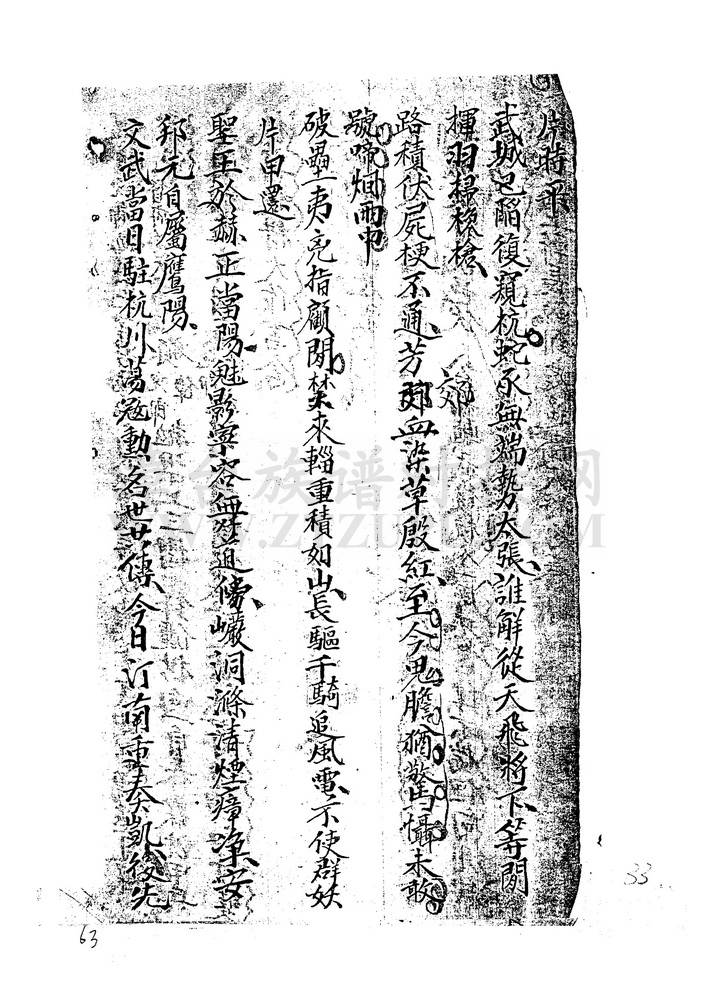 片時平
武城已陷復窺杭蛇豕無端勢大張誰解從天飛將下等閒
揮羽掃欃槍
路積伏屍梗不通芳郊血染草殷紅至今鬼膽猶驚懾未敢
郊
號啼烟雨中
破壘夷兇指顧閒禁來輜重積如山長驅千騎追風電不使群妖
片甲還
聖王於赫正當陽魅影寧容無遁傍巖洞滌清煙瘴净安
邦元自屬鷹陽
文武當日駐杭川蕩寇勳名世世傳今日汀南重奏凱後先
33
63